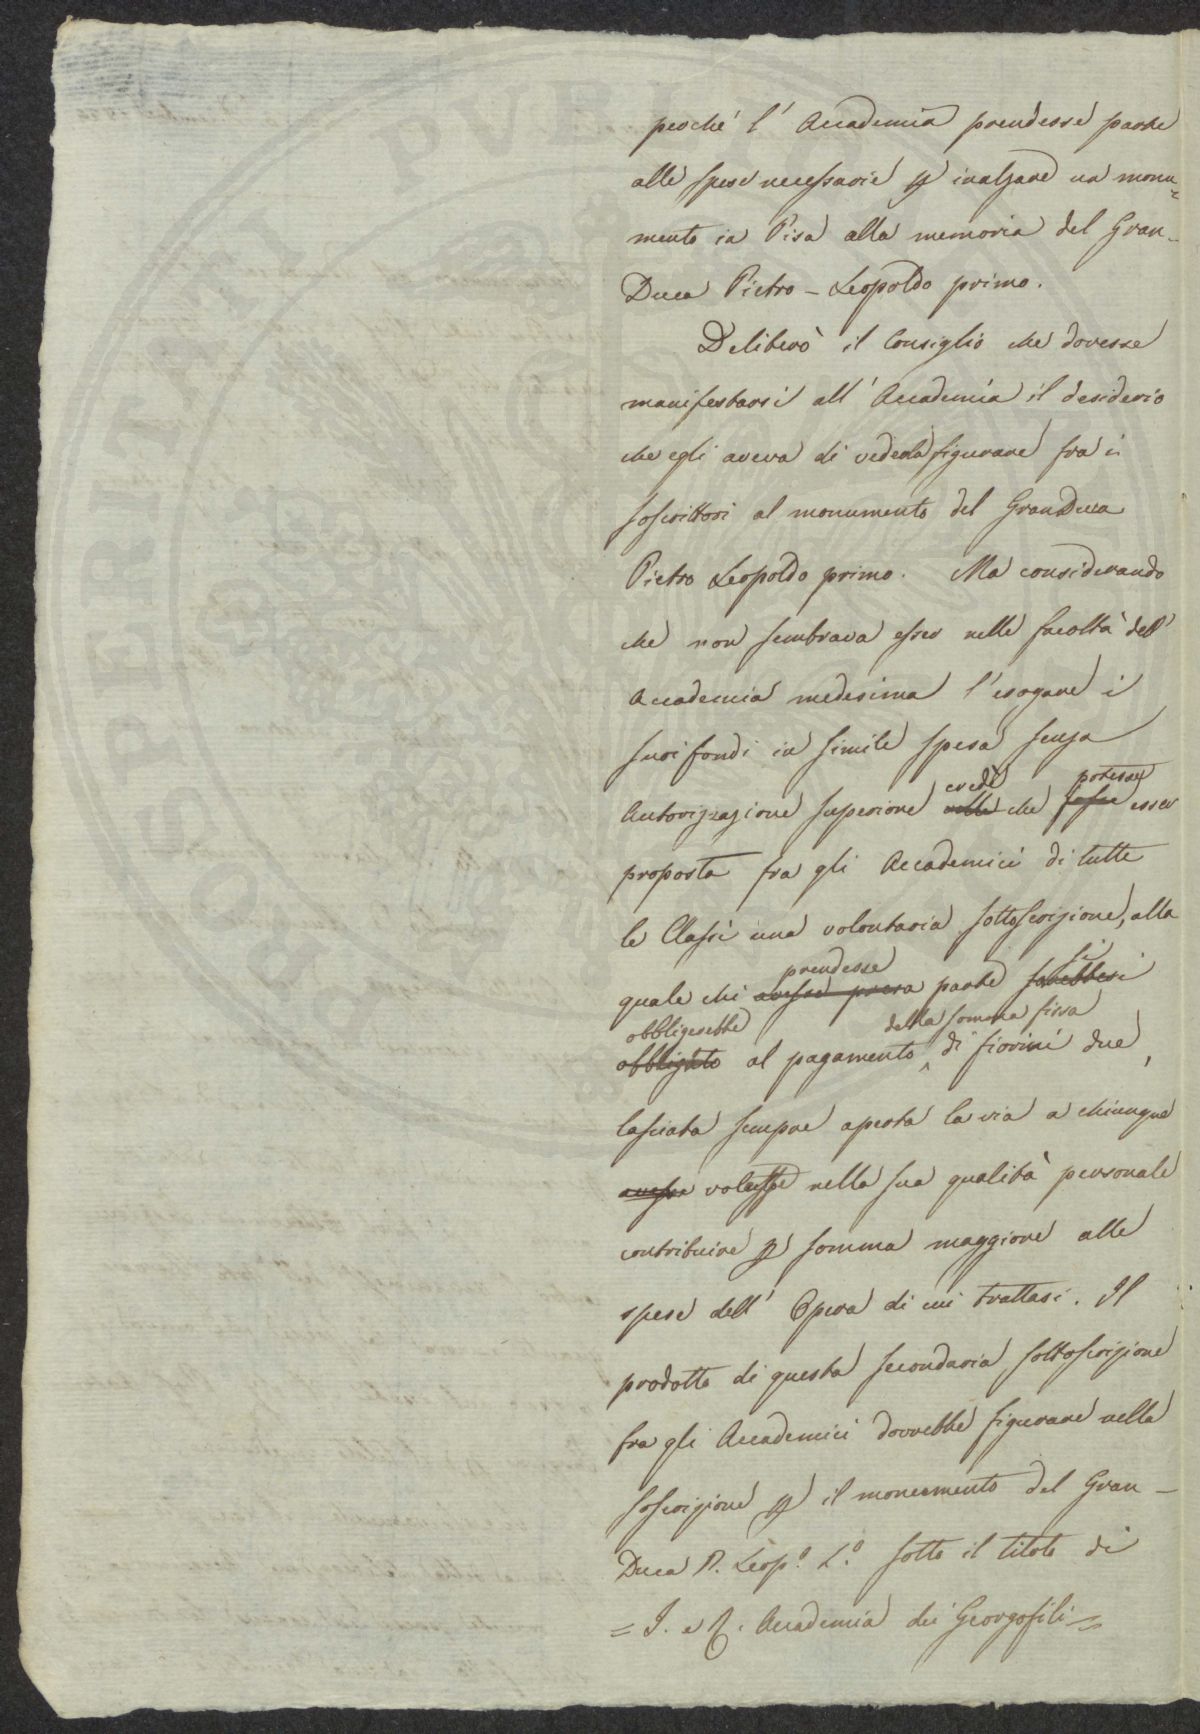 perché l' Accademia prendesse parte
alle spese necessarie p inalzare un monu=
mento in Pisa alla memoria del Gran-
Duca Pietro-Leopoldo primo.
Deliberò il Consiglio che dovesse
manifestarsi all' Accademia il desiderio
che egli aveva di vederla figurare fra i
soscrittori al monumento del GranDuca
Pietro Leopoldo primo. Ma considerando
che non sembrava esser nelle facoltà dell'
Accademia medesima l'erogare i
suoi fondi in simile spesa senza
credè potesse
Autorizzazione superiore volle che fosse esser
proposta fra gli Accademici di tutte
le Classi una volontaria sottoscrizione, alla
prendesse si
quale chi avesse presa parte sarebbesi
obbligerebbe della somma fissa
obbligato al pagamento ^ di fiorini due,
lasciata sempre aperta la via a chiunque
avesse volesse nella sua qualità personale
contribuire p somma maggiore alle
spese dell' Opera di cui trattasi. Il
prodotto di questa secondaria sottoscrizione
fra gli Accademici dovrebbe figurare nella
soscrizione p il monumento del Gran-
Duca P. Leop.º I.º sotto il titolo di
= I. e R. Accademia dei Georgofili =